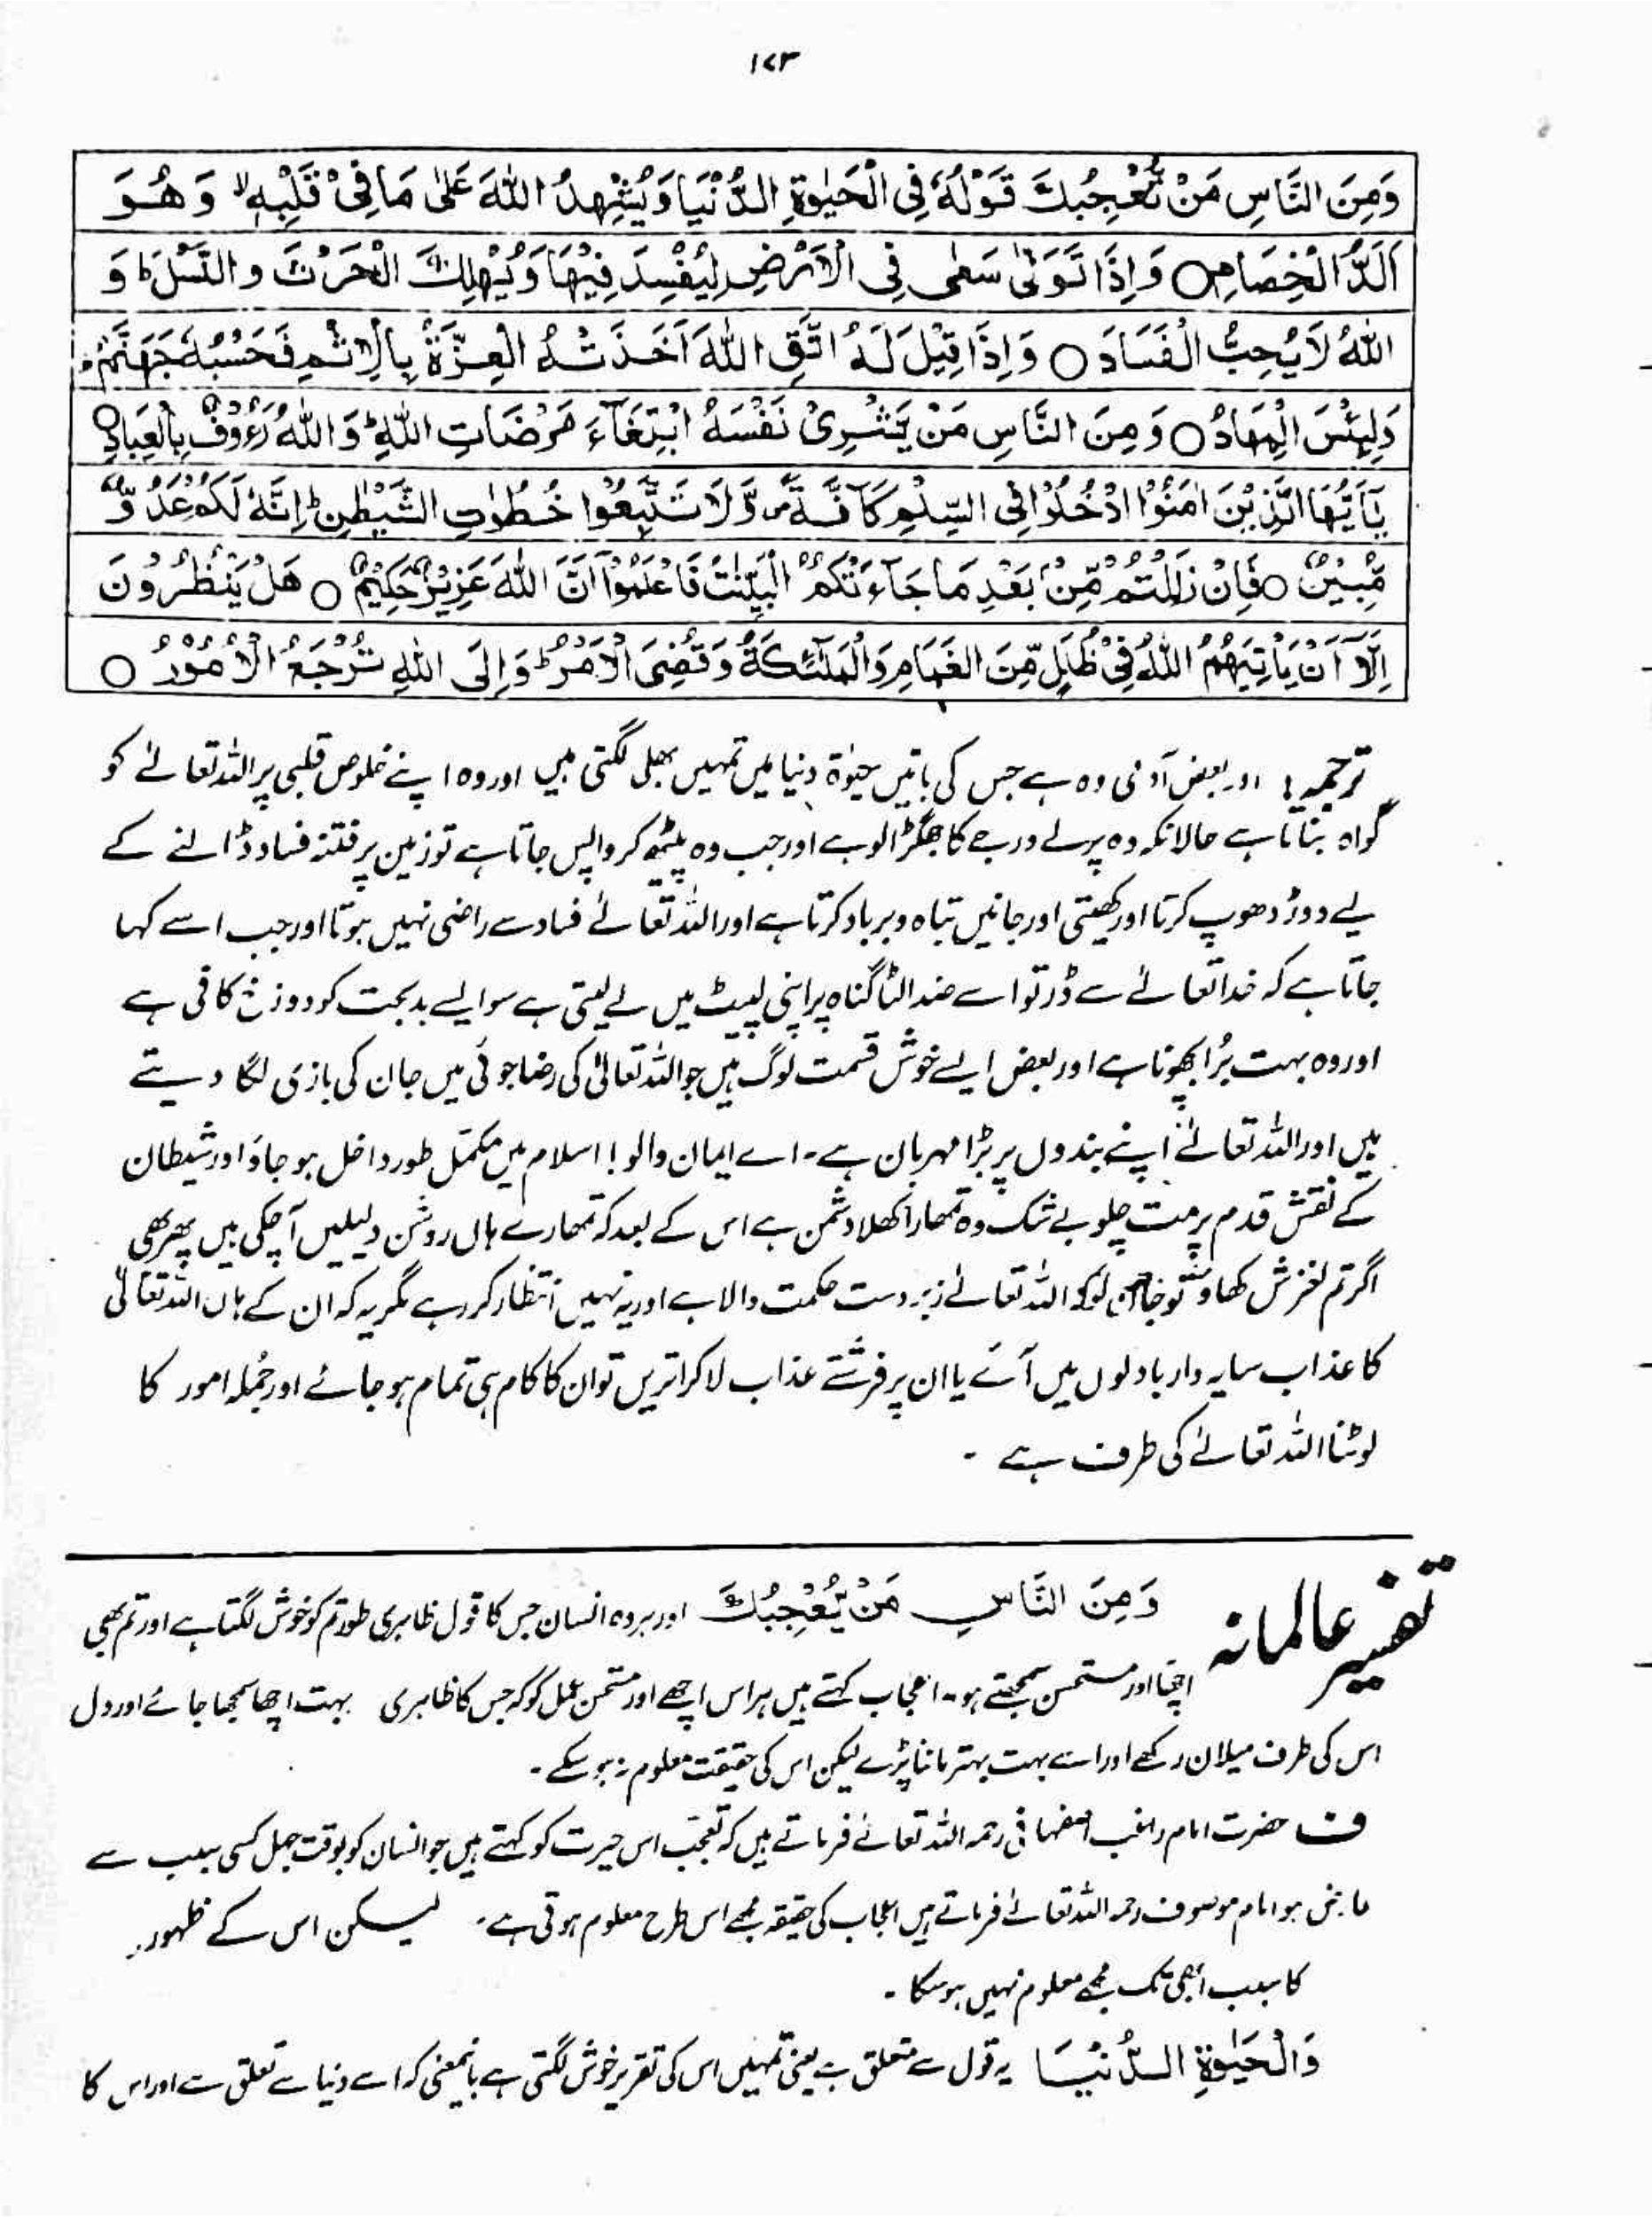 ۱۷۳
وَمِنَ النَّاسِ مَنْ يُّعْجِبُكَ قَوْلُهٗ فِى الْحَيٰوةِ الدُّنْيَا وَيُشْهِدُ اللّٰهَ عَلٰى مَا فِىْ قَلْبِهٖ ۙ وَهُوَ
اَلَدُّ الْخِصَامِ ○ وَاِذَا تَوَلّٰى سَعٰى فِى الْاَرْضِ لِيُفْسِدَ فِيْهَا وَيُهْلِكَ الْحَرْثَ وَالنَّسْلَ ؕ وَ
اللّٰهُ لَا يُحِبُّ الْفَسَادَ ○ وَاِذَا قِيْلَ لَهُ اتَّقِ اللّٰهَ اَخَذَتْهُ الْعِزَّةُ بِالْاِثْمِ فَحَسْبُهٗ جَهَنَّمُ ؕ
وَلَبِئْسَ الْمِهَادُ ○ وَمِنَ النَّاسِ مَنْ يَّشْرِىْ نَفْسَهُ ابْتِغَآءَ مَرْضَاتِ اللّٰهِ ؕ وَاللّٰهُ رَءُوْفٌۢ بِالْعِبَادِ ○
يٰٓاَيُّهَا الَّذِيْنَ اٰمَنُوا ادْخُلُوْا فِى السِّلْمِ كَآفَّةً ۪ وَّلَا تَتَّبِعُوْا خُطُوٰتِ الشَّيْطٰنِ ؕ اِنَّهٗ لَكُمْ عَدُوٌّ
مُّبِيْنٌ ○ فَاِنْ زَلَلْتُمْ مِّنْۢ بَعْدِ مَا جَآءَتْكُمُ الْبَيِّنٰتُ فَاعْلَمُوْٓا اَنَّ اللّٰهَ عَزِيْزٌ حَكِيْمٌ ○ هَلْ يَنْظُرُوْنَ
اِلَّآ اَنْ يَّاْتِيَهُمُ اللّٰهُ فِىْ ظُلَلٍ مِّنَ الْغَمَامِ وَالْمَلٰٓئِكَةُ وَقُضِىَ الْاَمْرُ ؕ وَاِلَى اللّٰهِ تُرْجَعُ الْاُمُوْرُ ○
ترجمہ: اور بعض آدمی وہ ہے جس کی باتیں حیوٰۃ دنیا میں تمہیں بھلی لگتی ہیں اور وہ اپنے خلوص قلبی پر اللہ تعالےٰ کو
گواہ بناتا ہے حالانکہ وہ پرلے درجے کا جھگڑالو ہے اور جب وہ پیٹھ کر واپس جاتا ہے تو زمین پر فتنہ فساد ڈالنے کے
لیے دوڑ دھوپ کرتا اور کھیتی اور جانیں تباہ و برباد کرتا ہے اور اللہ تعالےٰ فساد سے راضی نہیں ہوتا اور جب اسے کہا
جاتا ہے کہ خدا تعالےٰ سے ڈر تو اسے ضد الٹا گناہ پر اپنی لپیٹ میں لے لیتی ہے سو ایسے بدبخت کو دوزخ کافی ہے
اور وہ بہت بُرا بچھونا ہے اور بعض ایسے خوش قسمت لوگ ہیں جو اللہ تعالیٰ کی رضا جوئی میں جان کی بازی لگا دیتے
ہیں اور اللہ تعالےٰ اپنے بندوں پر بڑا مہربان ہے۔ اے ایمان والو! اسلام میں مکمّل طور داخل ہو جاؤ اور شیطان
کے نقش قدم پر مت چلو بے شک وہ تمھارا کھلا دشمن ہے اس کے بعد کہ تمھارے ہاں روشن دلیلیں آ چکی ہیں پھر بھی
اگر تم لغزش کھاؤ تو جان لو کہ اللہ تعالےٰ زبردست حکمت والا ہے اور یہ نہیں انتظار کر رہے مگر یہ کہ ان کے ہاں اللہ تعالیٰ
کا عذاب سایہ دار بادلوں میں آئے یا ان پر فرشتے عذاب لا کر اتریں تو ان کا کام ہی تمام ہو جائے اور جُملہ امور کا
لوٹنا اللہ تعالےٰ کی طرف ہے ۔
تفسیر عالمانہ
وَمِنَ النَّاسِ مَنْ يُّعْجِبُكَ اور ہر وہ انسان جس کا قول ظاہری طور تم کو خوش لگتا ہے اور تم بھی
اچھا اور مستحسن سمجھتے ہو۔ اعجاب کہتے ہیں ہر اس اچھے اور مستحسن عمل کو کہ جس کا ظاہری بہت اچھا سمجھا جائے اور دل
اس کی طرف میلان رکھے اور اسے بہت بہتر ماننا پڑے لیکن اس کی حقیقت معلوم نہ ہو سکے ۔
ف حضرت امام راغب اصفہانی رحمہ اللہ تعالےٰ فرماتے ہیں کہ تعجّب اس حیرت کو کہتے ہیں جو انسان کو بوقت جہل کسی سبب سے
عارض ہو امام موصوف رحمہ اللہ تعالےٰ فرماتے ہیں اعجاب کی حقیقۃ مجھے اس طرح معلوم ہوتی ہے۔ لیکن اس کے ظہور
کا سبب ابھی تک مجھے معلوم نہیں ہو سکا ۔
وَالْحَيٰوةِ الدُّنْيَا یہ قول سے متعلق ہے یعنی تمہیں اس کی تقریر خوش لگتی ہے بایںمعنی کہ اسے دنیا سے تعلق ہے اور اس کا